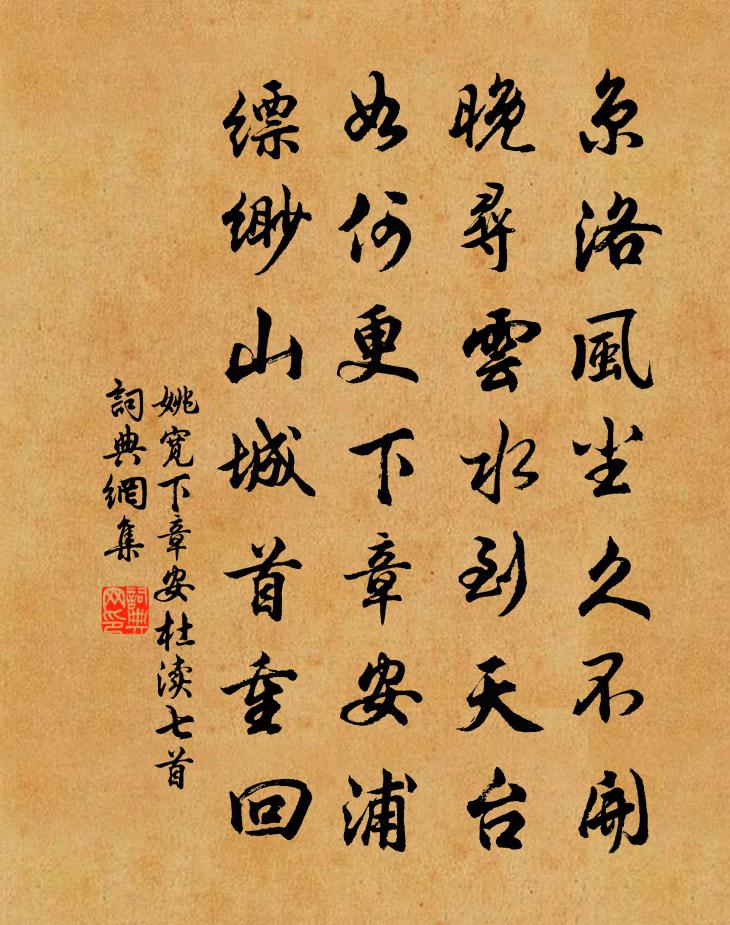 京洛風尘久不開
晚尋雲水到天台
如何更下章安浦
縹緲山城首重回
姚寬下章安杜渎七首
詞典網集
詞典网印